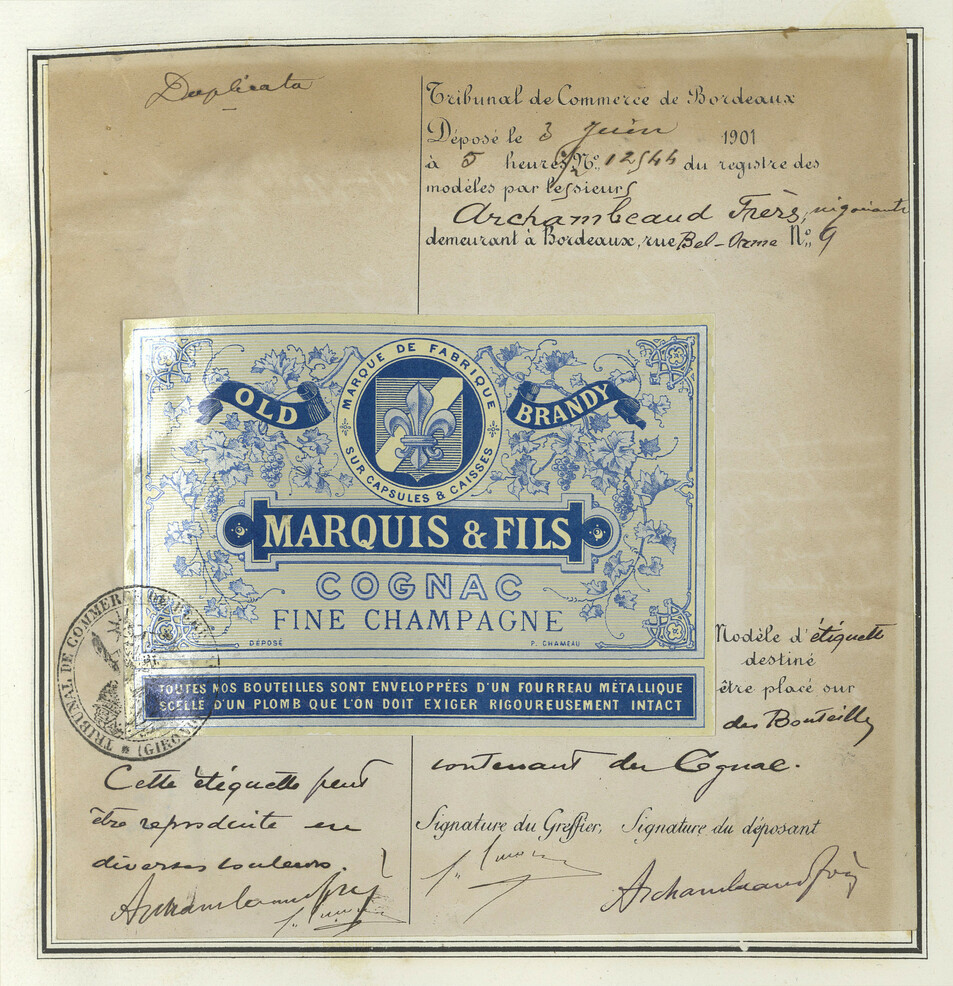 Duplicata
Tribunal de Commerce de Bordeaux
Déposé le 3 Juin 1901
à 5 heures 1/2 No. 12544 du registre des
modèles par les sieurs
Archambeaud Frères, négociants
demeurant à Bordeaux, rue Bel-Orme No. 9
MARQUE DE FABRIQUE
SUR CAPSULES & CAISSES
OLD BRANDY
MARQUIS & FILS
COGNAC
FINE CHAMPAGNE
DÉPOSÉ P. CHAMEAU
TOUTES NOS BOUTEILLES SONT ENVELOPPÉES D'UN FOURREAU MÉTALLIQUE
SCELLÉ D'UN PLOMB QUE L'ON DOIT EXIGER RIGOUREUSEMENT INTACT
TRIBUNAL DE COMMERCE DE
(GIRONDE)
Modèle d'étiquette
destiné
être placé sur
des Bouteilles
contenant du Cognac.
Cette étiquette peut
être reproduite en
diverses couleurs.
Archambeaud Frères
Signature du Greffier, Signature du déposant
Archambeaud Frères